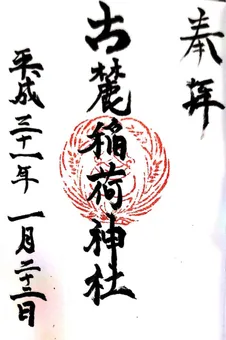 奉拝
古麓稲荷神社
平成三十一年 一月二十二日